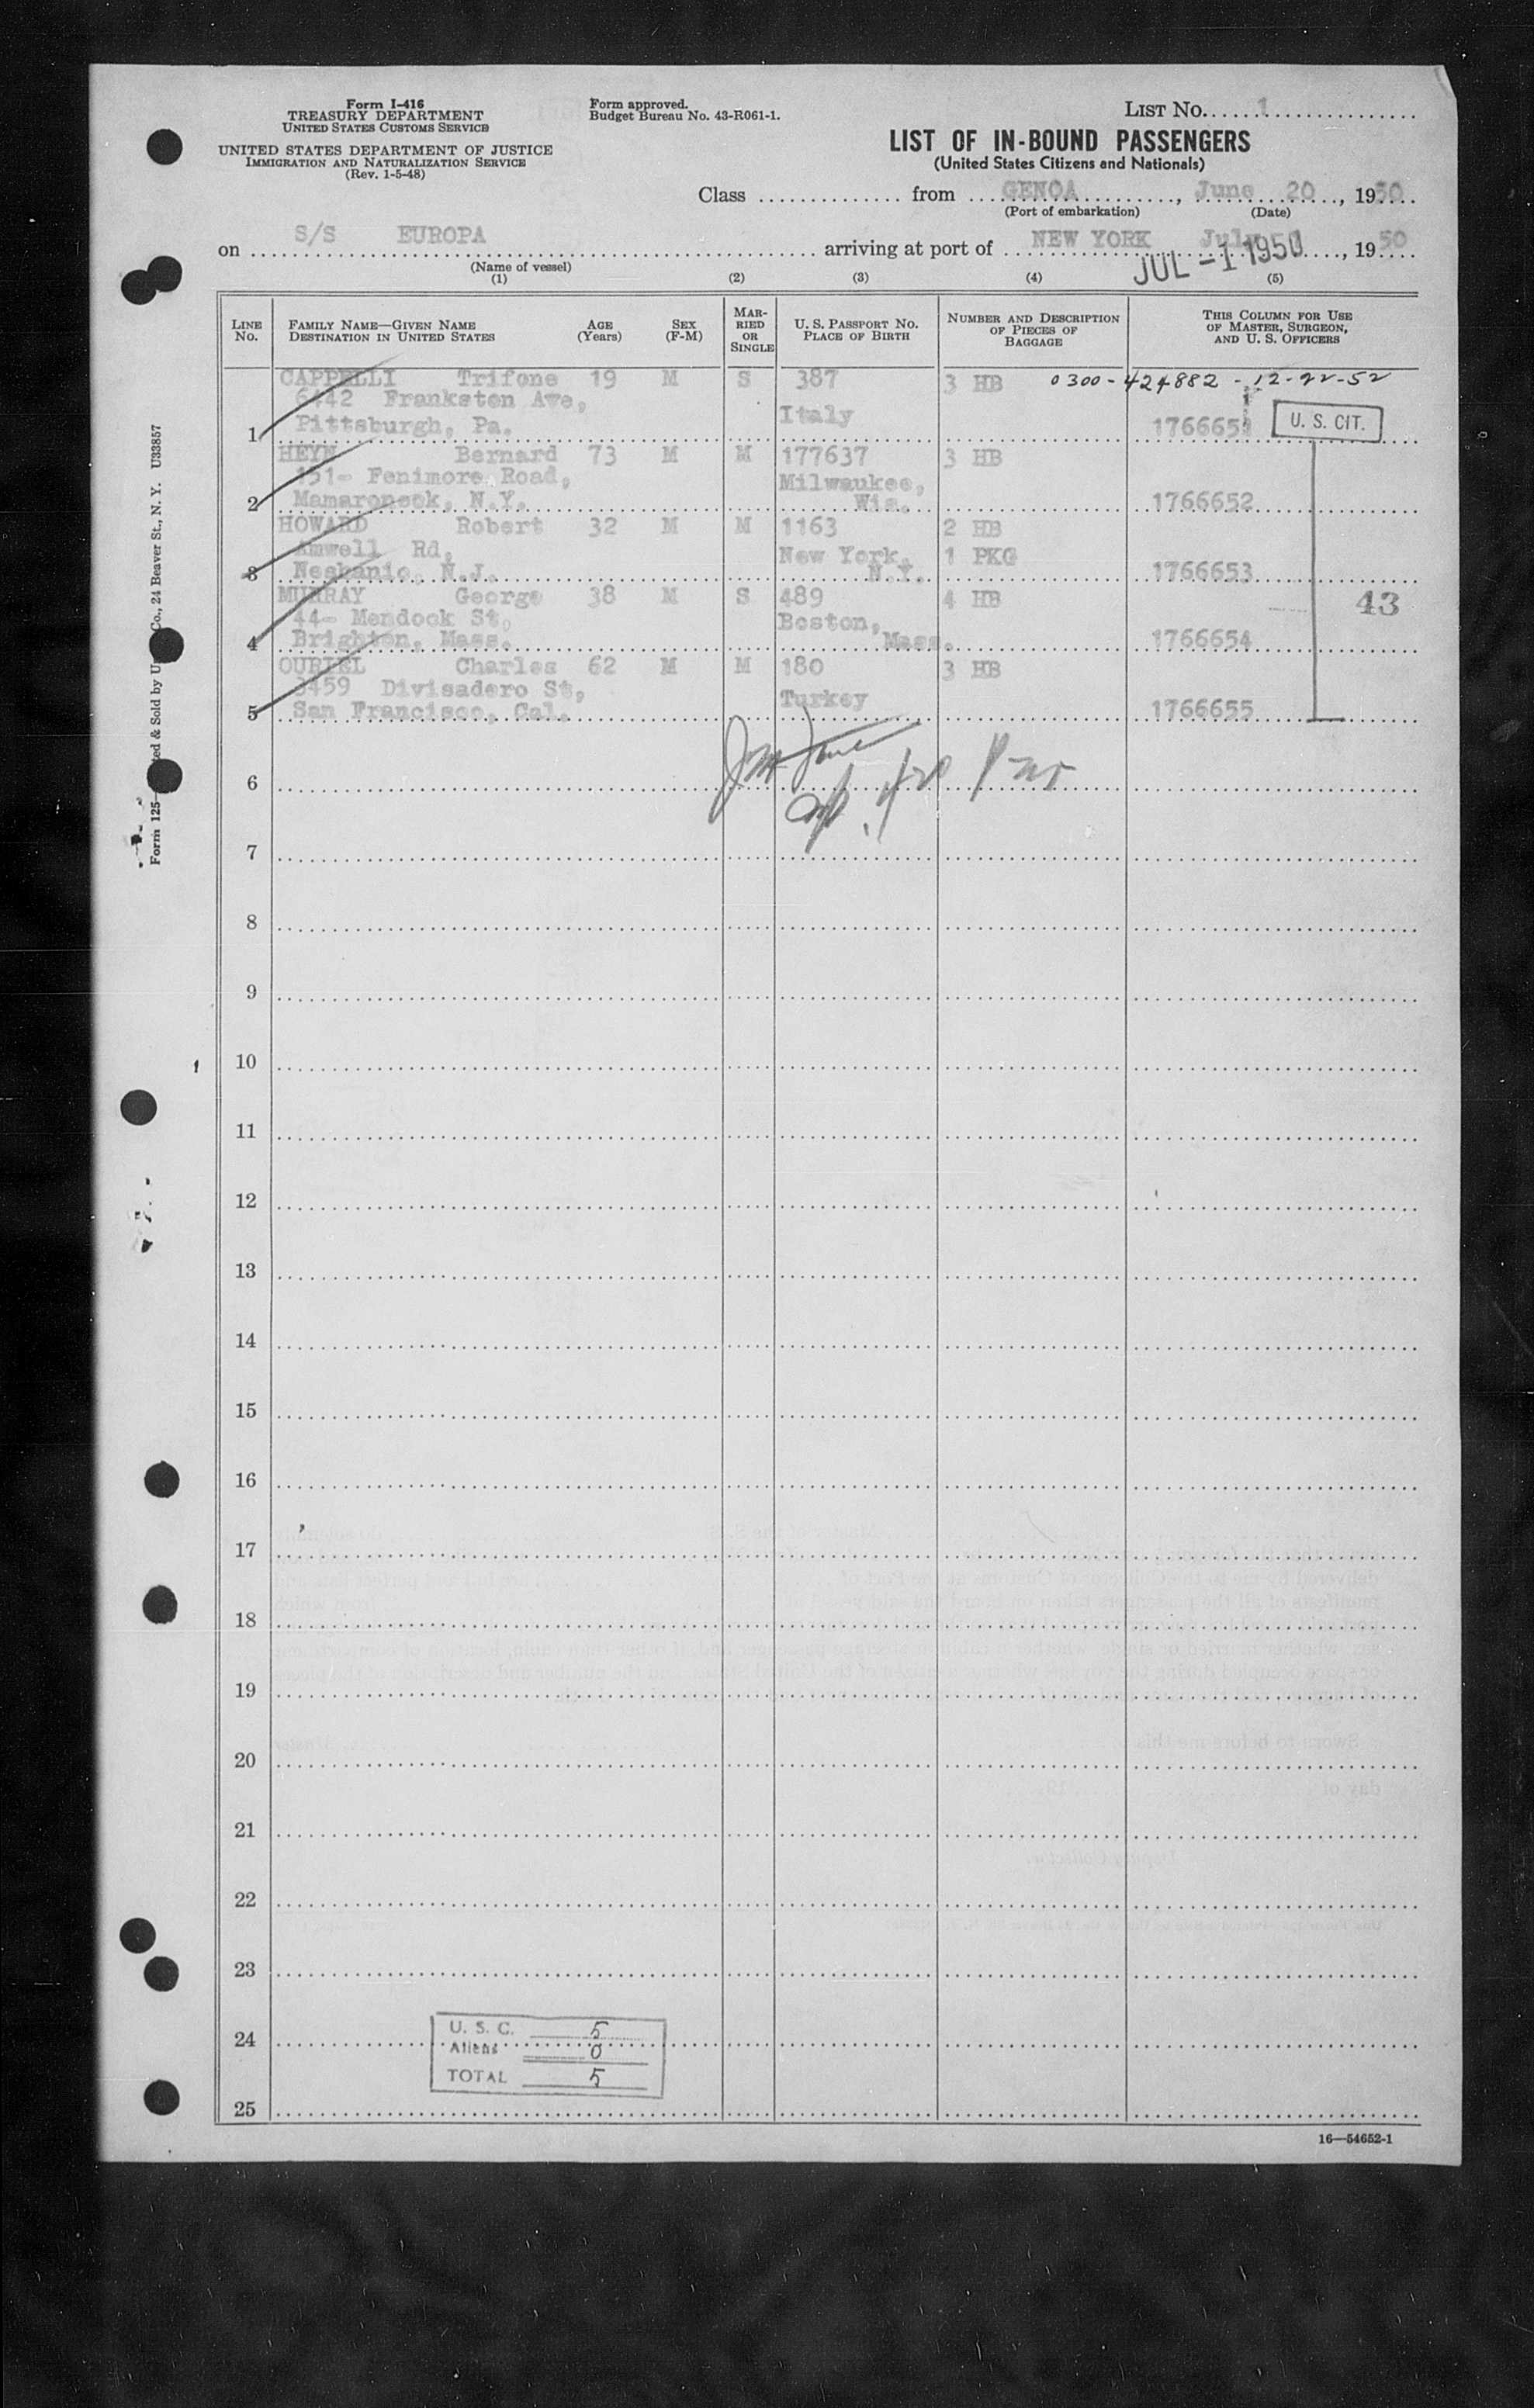 Form I-416
TREASURY DEPARTMENT
UNITED STATES CUSTOMS SERVICE
UNITED STATES DEPARTMENT OF JUSTICE
IMMIGRATION AND NATURALIZATION SERVICE
(Rev. 1-5-48)
Form approved.
Budget Bureau No. 43-R061-1.
LIST No. 1
LIST OF IN-BOUND PASSENGERS
(United States Citizens and Nationals)
Class from GENOA, June 20, 1950
(Port of embarkation) (Date)
on S/S EUROPA arriving at port of NEW YORK July 1, 1950
JUL -1 1950
(Name of vessel)
(1) (2) (3) (4) (5)
LINE No. FAMILY NAME—GIVEN NAME DESTINATION IN UNITED STATES AGE (Years) SEX (F-M) MARRIED OR SINGLE U. S. PASSPORT NO. PLACE OF BIRTH NUMBER AND DESCRIPTION OF PIECES OF BAGGAGE THIS COLUMN FOR USE OF MASTER, SURGEON, AND U. S. OFFICERS
CAPPELLI Trifone 19 M S 387 3 HB 0300-424882-12-22-52
6442 Frankston Ave,
Italy
1 Pittsburgh, Pa. 1766651 U. S. CIT.
HEYN Bernard 73 M M 177637 3 HB
151- Fenimore Road, Milwaukee,
2 Mamaroneck, N.Y. Wis. 1766652
HOWARD Robert 32 M M 1163 2 HB
Amwell Rd, New York, 1 PKG
3 Neshanic, N.J. N.Y. 1766653
MURRAY George 38 M S 489 4 HB 43
44- Mendock St, Boston,
4 Brighton, Mass. Mass. 1766654
OURIEL Charles 62 M M 180 3 HB
3459 Divisadero St, Turkey
5 San Francisco, Cal. 1766655
6
7
8
9
10
11
12
13
14
15
16
17
18
19
20
21
22
23
24
25
U. S. C. 5
Aliens 0
TOTAL 5
16—54652-1
Co., 24 Beaver St., N. Y. U33857
ted & Sold by U
Form 125—